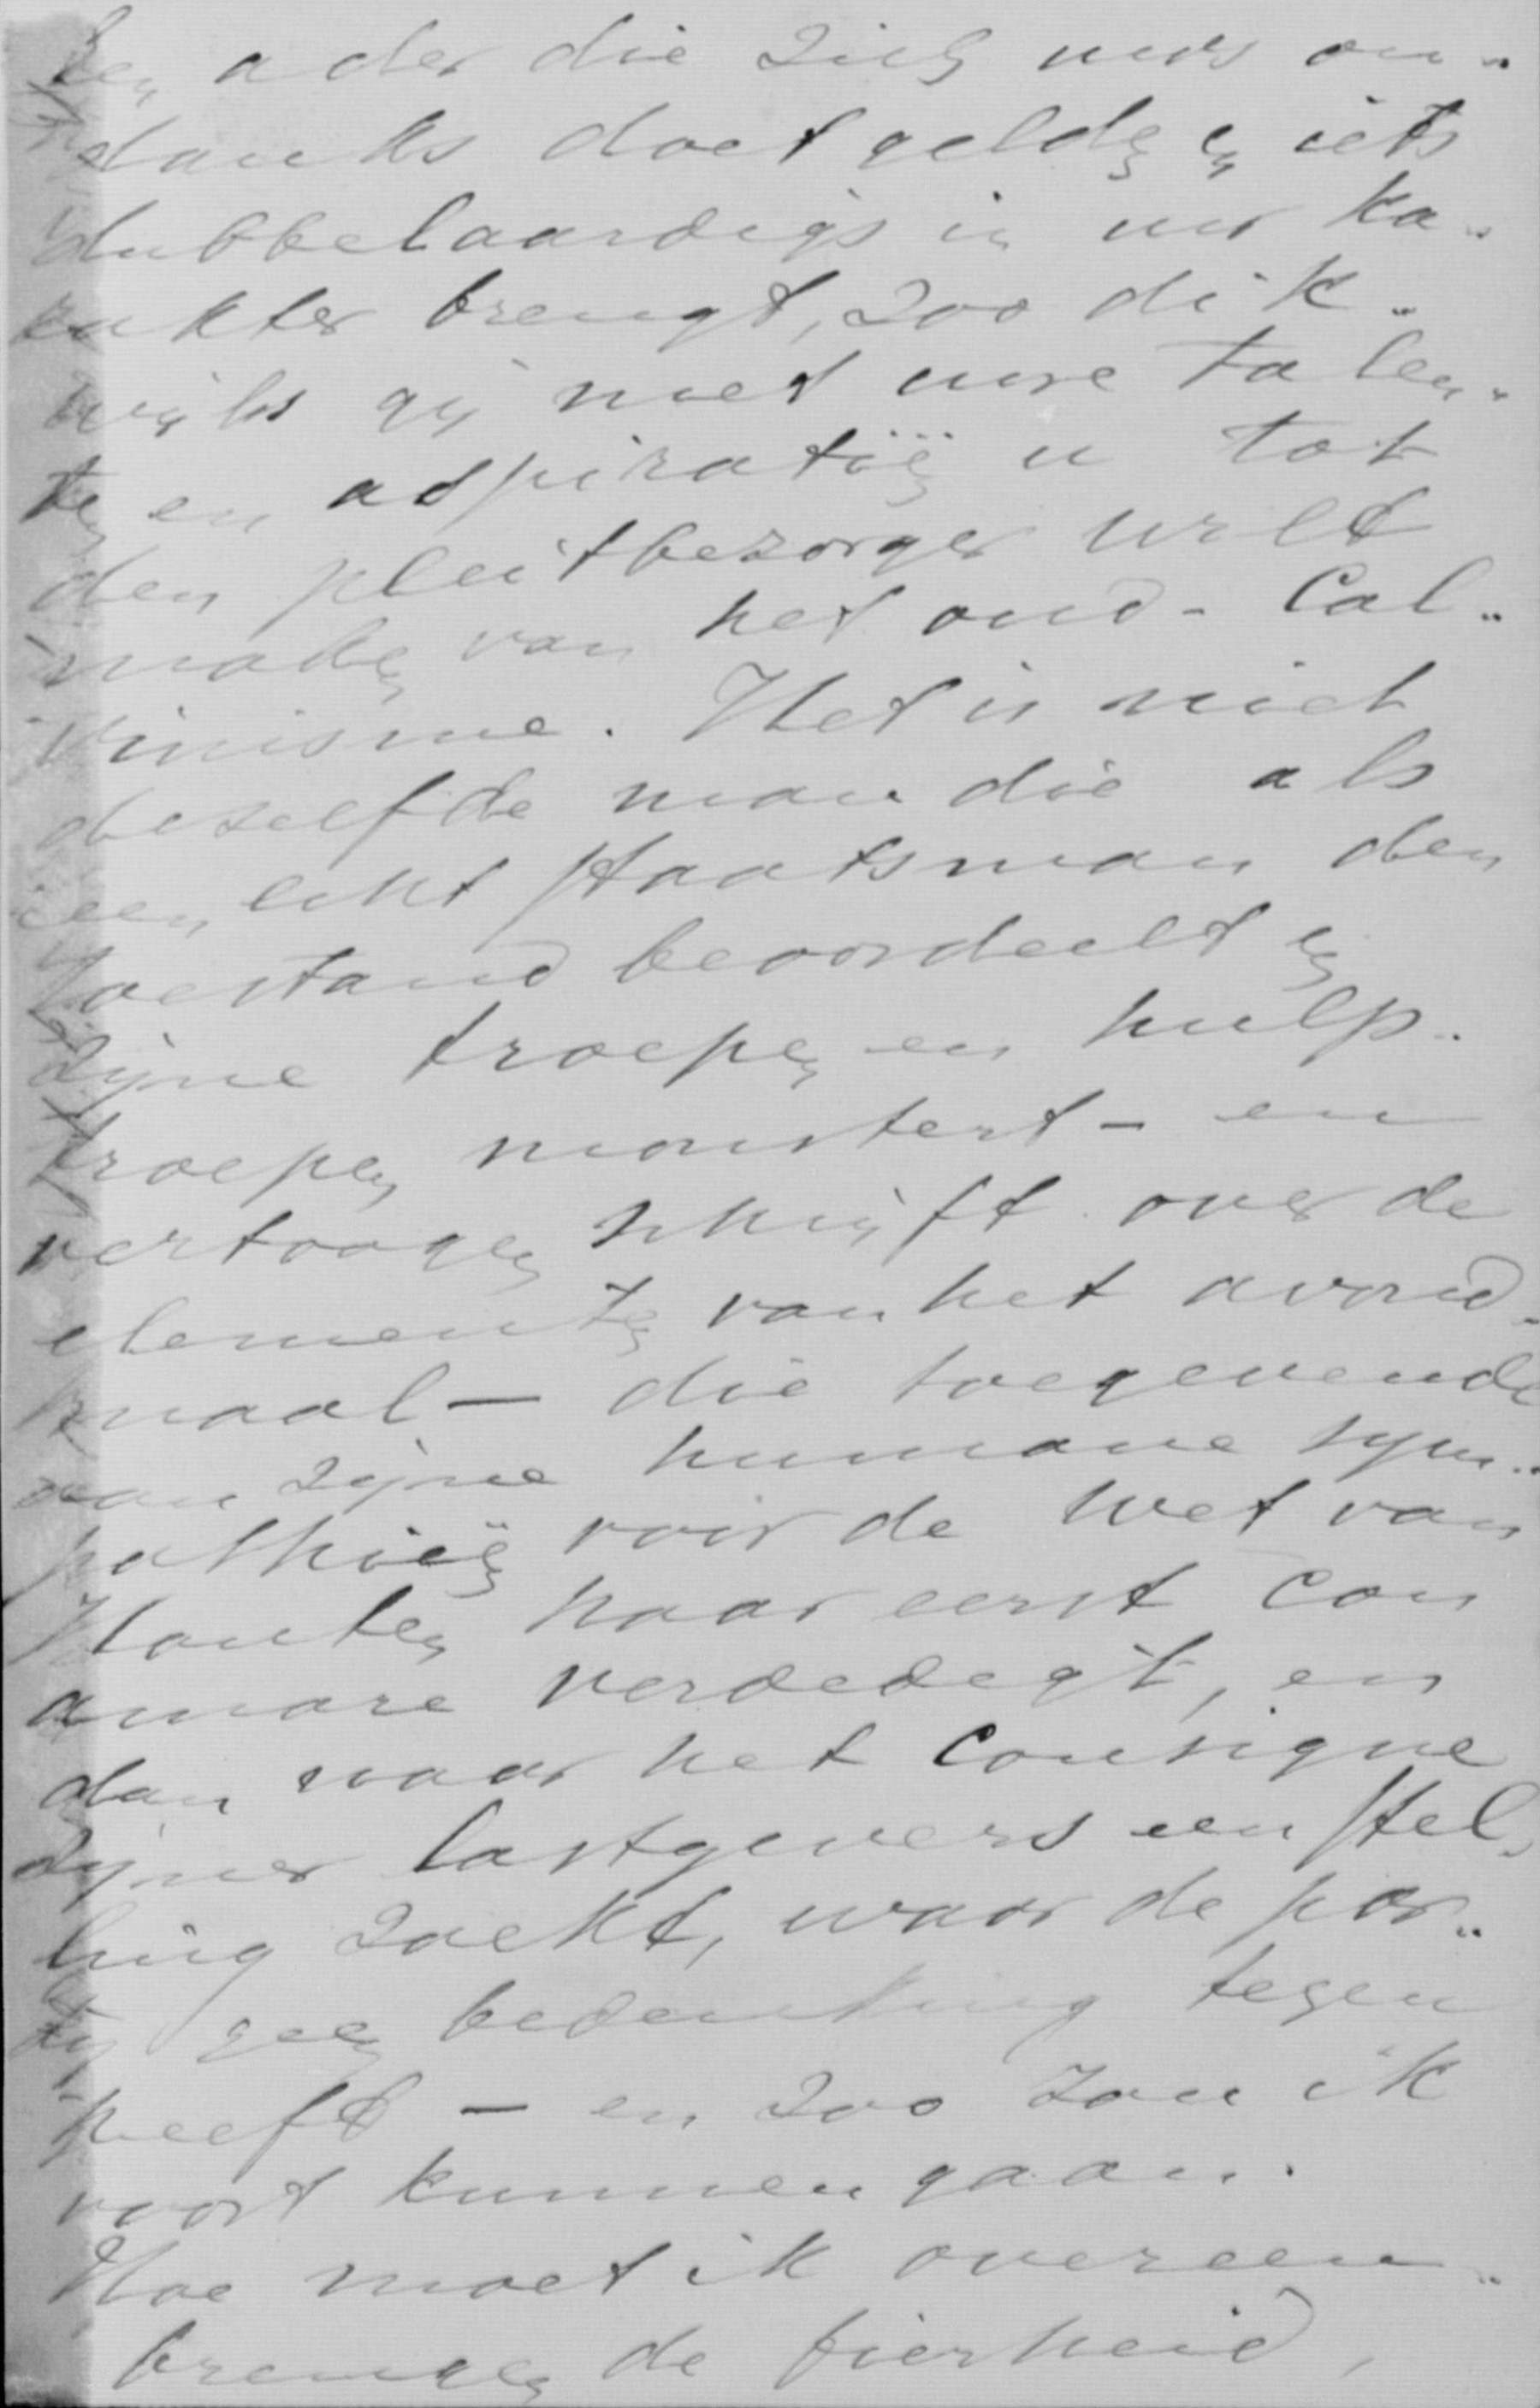 ten ader die zich uws on-
danks doet gelden en iets
dubbelaardigs in uw ka-
rakter brengt, zoo dik-
wijls gij met uwe talen-
ten en aspiratiën u tot
den pleitbezorger wilt
maken van het oud-Cal-
vinisme. Het is niet
dezelfde man die als
een echt staatsman den
toestand beoordeelt en
zijne troepen en hulp-
troepen monstert – en
vertoogen schrijft over de
elementen van het avond-
maal – die toegevende
aan zijne humane sym-
pathiën voor de wet van
Houten haar eerst con
amore verdedigt, en
dan naar het consigne
zijner lastgevers een stel-
ling zoekt, waar de par-
tij geen bedenking tegen
heeft – en zoo zou ik
voort kunnen gaan.
Hoe moet ik overeen-
brengen de fierheid,